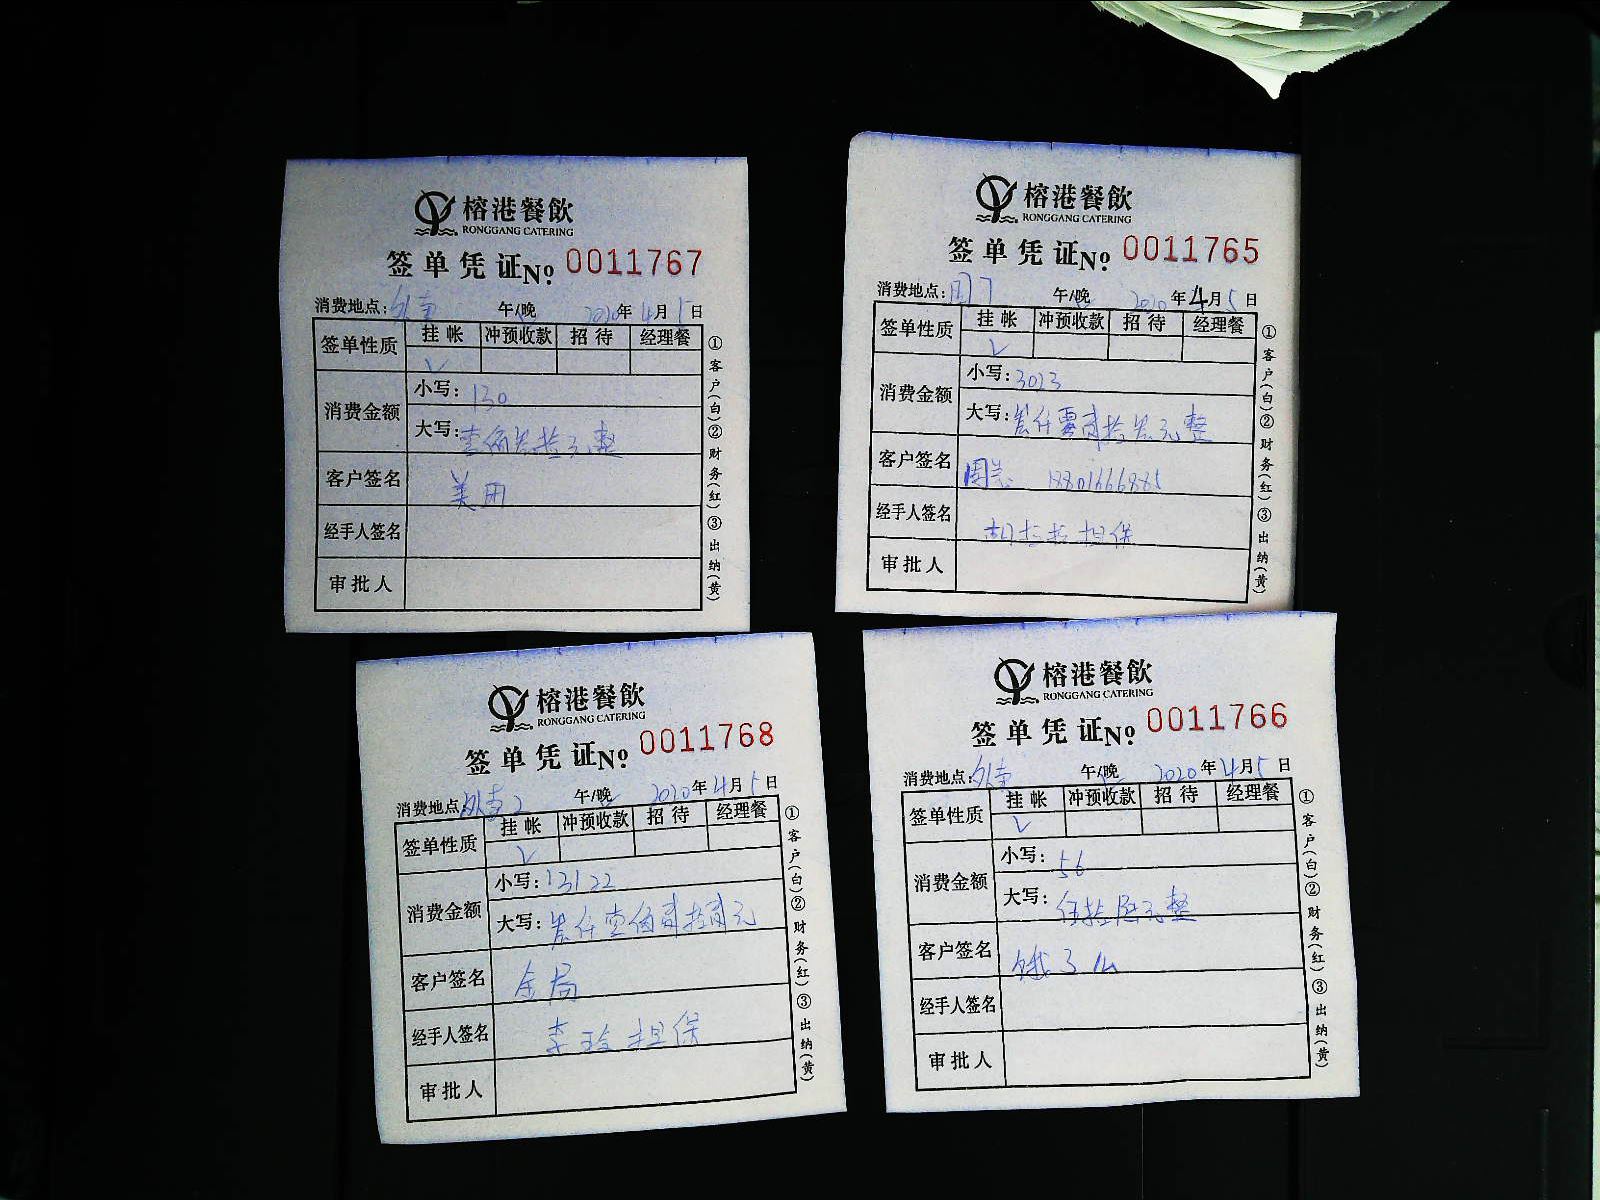 榕港餐飲
RONGGANG CATERING
签单凭证 No. 0011767
消费地点: 外卖 午/晚 2020年4月5日
签单性质 挂帐 冲预收款 招待 经理餐
✓
消费金额 小写: 130
大写: 壹佰叁拾元整
客户签名 美团
经手人签名
审批人
①客户(白)②财务(红)③出纳(黄)
榕港餐飲
RONGGANG CATERING
签单凭证 No. 0011765
消费地点: 午/晚 2020年4月5日
签单性质 挂帐 冲预收款 招待 经理餐
✓
消费金额 小写: 3023
大写: 叁仟零贰拾叁元整
客户签名 周总
经手人签名 担保
审批人
①客户(白)②财务(红)③出纳(黄)
榕港餐飲
RONGGANG CATERING
签单凭证 No. 0011768
消费地点: 外卖2 午/晚 2020年4月5日
签单性质 挂帐 冲预收款 招待 经理餐
✓
消费金额 小写:
大写: 叁仟壹佰贰拾贰元
客户签名 金局
经手人签名 李玲担保
审批人
①客户(白)②财务(红)③出纳(黄)
榕港餐飲
RONGGANG CATERING
签单凭证 No. 0011766
消费地点: 外卖 午/晚 2020年4月5日
签单性质 挂帐 冲预收款 招待 经理餐
✓
消费金额 小写: 56
大写: 伍拾陆元整
客户签名 饿了么
经手人签名
审批人
①客户(白)②财务(红)③出纳(黄)